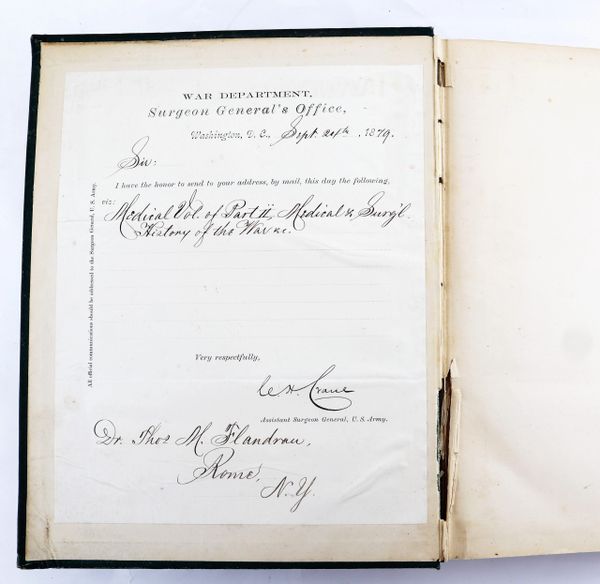 WAR DEPARTMENT,
Surgeon General's Office,
Washington, D. C., Sept. 24th, 1879.
Sir:
I have the honor to send to your address, by mail, this day the following,
viz: Medical Vol. of Part II, Medical & Surg'l
History of the War &c.
Very respectfully,
C H. Crane
Assistant Surgeon General, U. S. Army.
Dr. Thos M. Flandrau,
Rome,
N. Y.
All official communications should be addressed to the Surgeon General, U. S. Army.